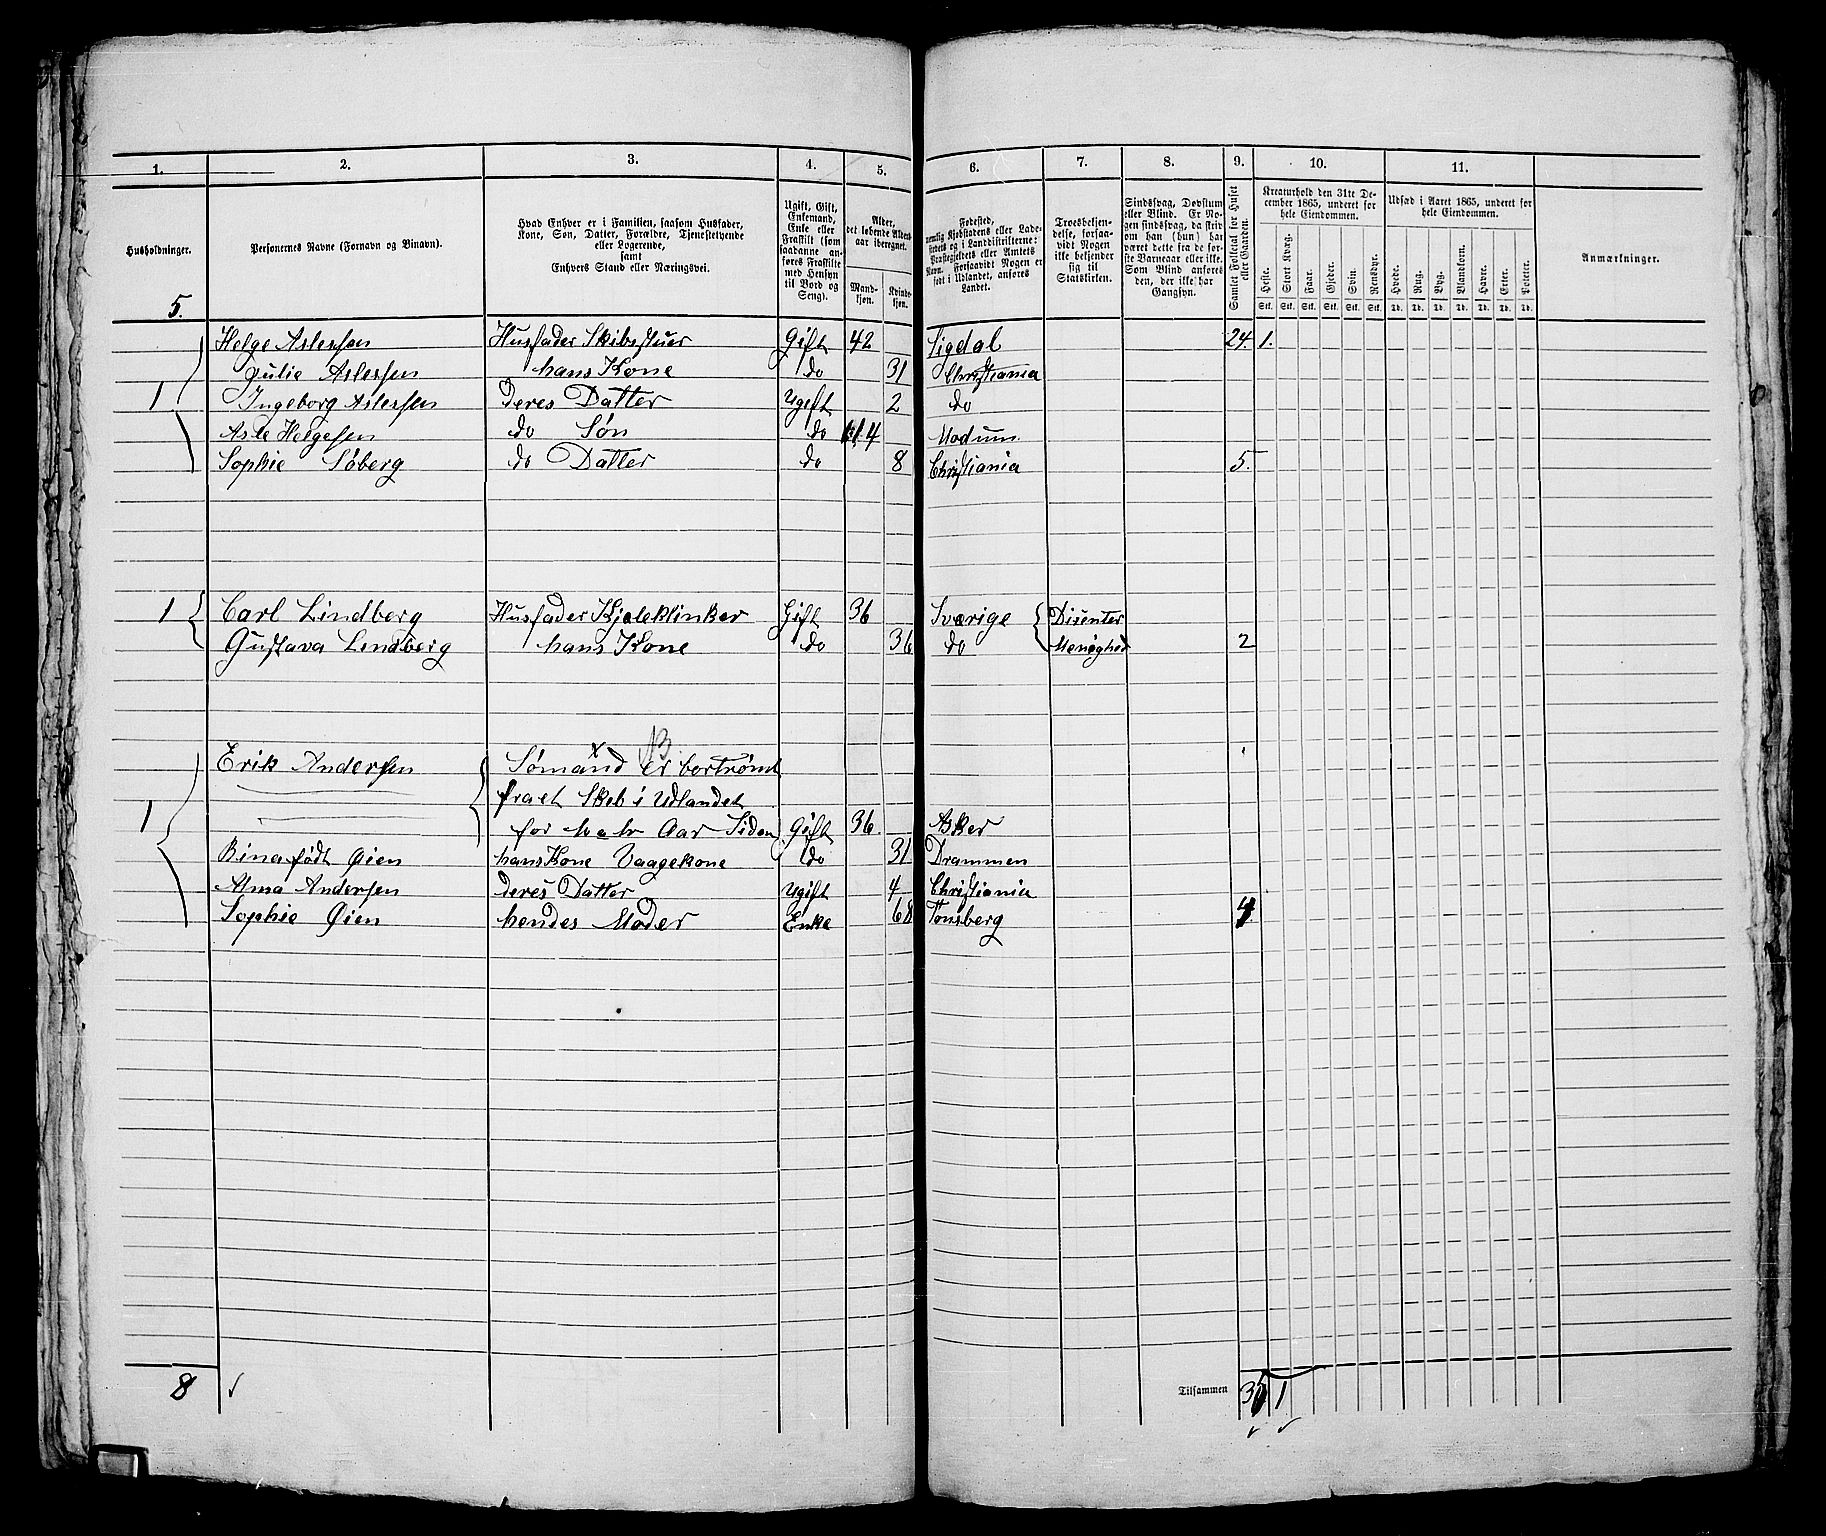 1. 2. 3. 4. 5. 6. 7. 8. 9. 10. 11.
Husholdninger.
Personernes Navne (Fornavn og Binavn).
Hvad Enhver er i Familien, saasom Husfader,
Kone, Søn, Datter, Forældre, Tjenestetyende
eller Logerende,
samt
Enhvers Stand eller Næringsvei.
Ugift, Gift,
Enkemand,
Enke eller
Fraskilt (som
saadanne an-
føres Fraskilte
med Hensyn
til Bord og
Seng).
Alder,
det løbende Alders-
aar iberegnet.
Mand-
kjøn.
Kvinde-
kjøn.
Fødested,
nemlig Kjøbstadens eller Lade-
stedets og i Landdistrikterne:
Præstegjeldets eller Amtets
Navn. Forsaavidt Nogen er
født i Udlandet, anføres
Landet.
Troesbekjen-
delse, forsaa-
vidt Nogen
ikke bekjender
sig til
Statskirken.
Sindssvag, Døvstum
eller Blind. Er No-
gen sindssvag, da skriv
om han (hun) har
været dette fra de før-
ste Barneaar eller ikke.
Som Blind anføres
den, der ikke har
Gangsyn.
Samlet Folketal for Huset
eller Gaarden.
Kreaturhold den 31te De-
cember 1865, underet for
hele Eiendommen.
Heste. Stort Kvæg. Faar. Gjeder. Svin. Rensdyr.
Stk. Stk. Stk. Stk. Stk. Stk.
Udsæd i Aaret 1865, underet for
hele Eiendommen.
Hvede. Rug. Byg. Blandkorn. Havre. Erter. Poteter.
Td. Td. Td. Td. Td. Td. Td.
Anmærkninger.
5.
Helge Aslessen Husfader Skibsstuer Gift 42 Sigdal 24. 1.
Julie Aslessen hans Kone do 31 Christiania
1 Ingeborg Aslessen deres Datter Ugift 2 do
Asle Helgesen do Søn do 14 Modum
Sophie Søberg do Datter do 8 Christiania 5.
1 Carl Lindberg Husfader Gift 36 Sværige Disenter
Gustava Lindberg hans Kone do 36 do Menighed 2
B
x
Erik Andersen Sømand er bortrømt
fra et Skib i Udlandet
1 for Aar Siden Gift 36. Asker
Bina født Øien hans Kone Vaagekone do 31 Drammen
Alma Andersen deres Datter Ugift 4 Christiania
Sophie Øien hendes Moder Enke 68 Tønsberg 4
8 ✓ Tilsammen 35 1
✓ ✓